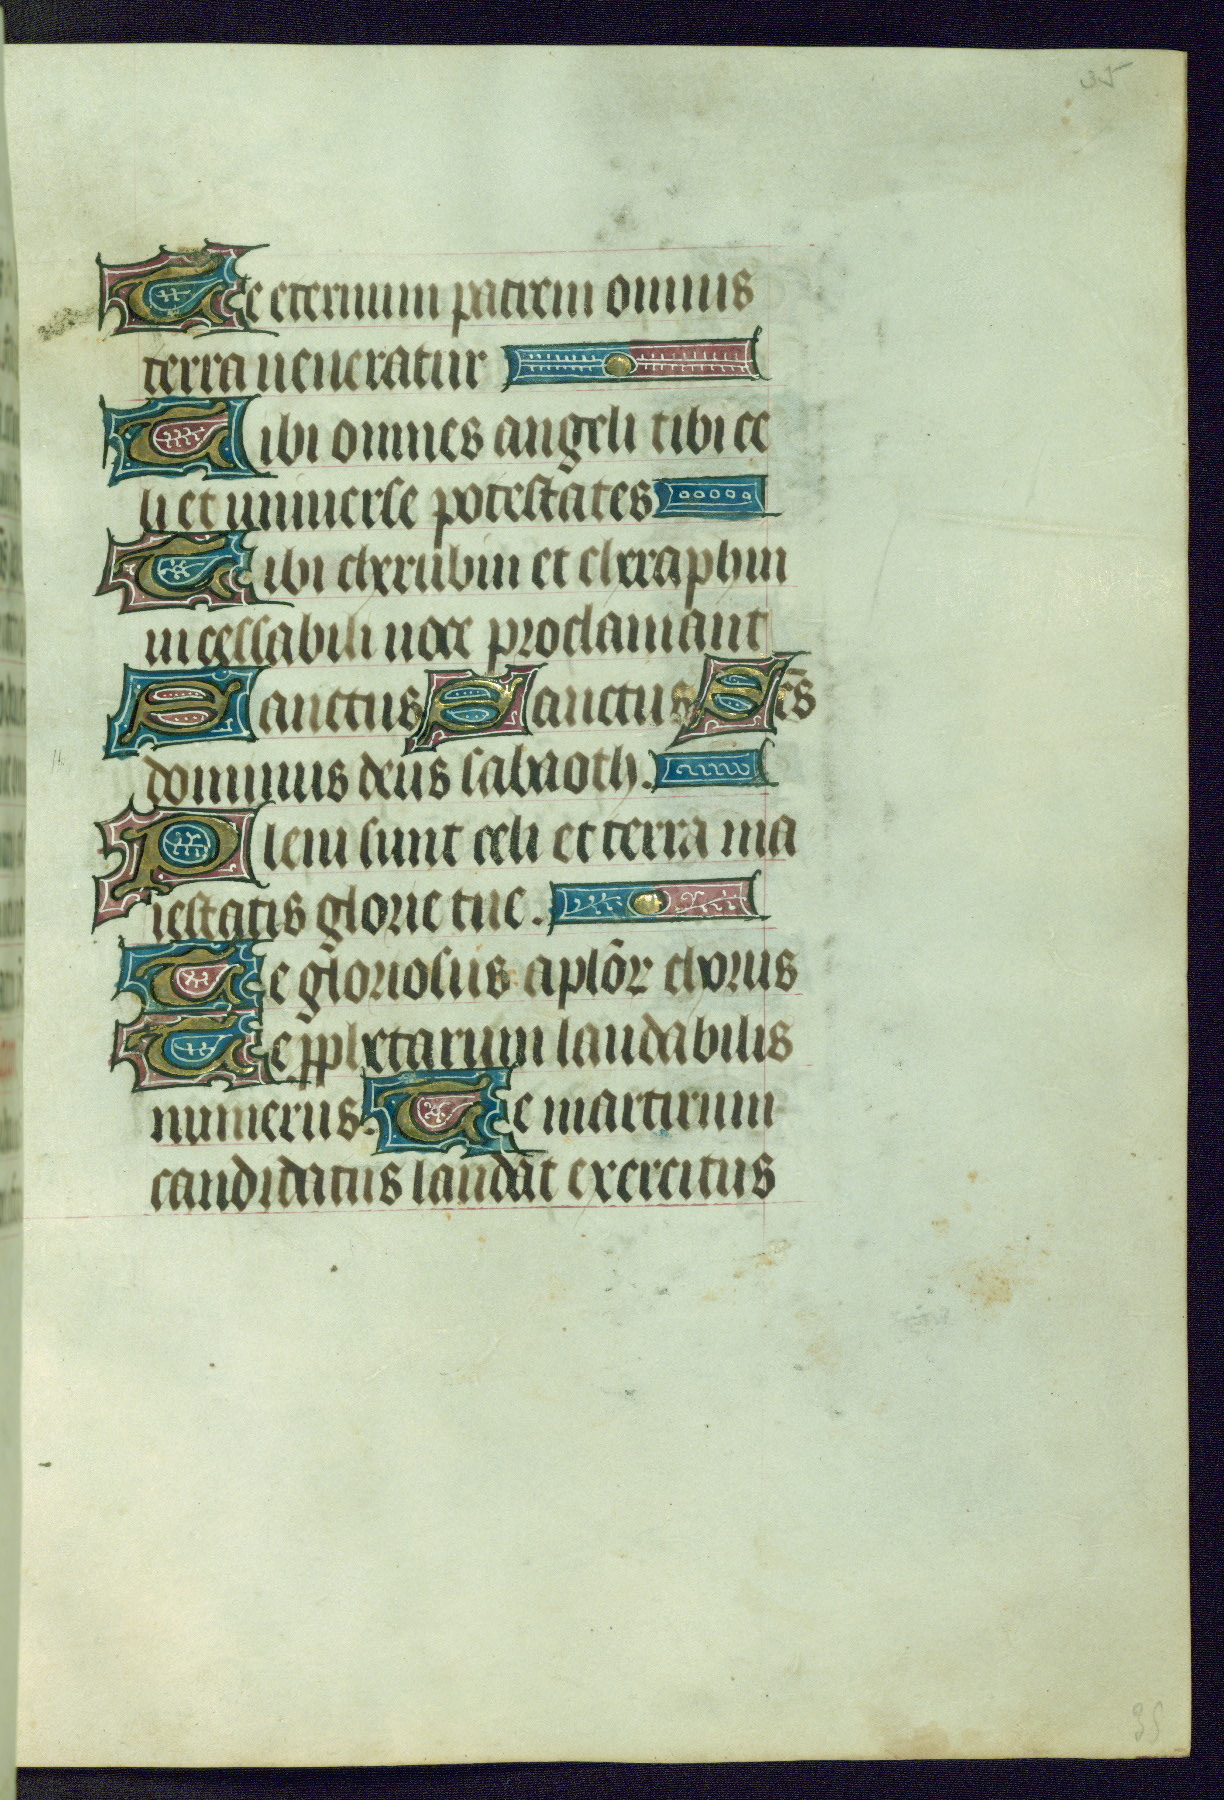 35
Te eternum patrem omnis
terra ueneratur
Tibi omnes angeli tibi ce
li et uniuerse potestates
Tibi cherubin et cheraphin
incessabili uoce proclamant
Sanctus Sanctus Sc̄s
dominus deus sabaoth.
Pleni sunt celi et terra ma
iestatis glorie tue.
Te gloriosus aplōꝝ chorus
Te ꝓphetarum laudabilis
numerus. Te martirum
candidatus laudat exercitus
35